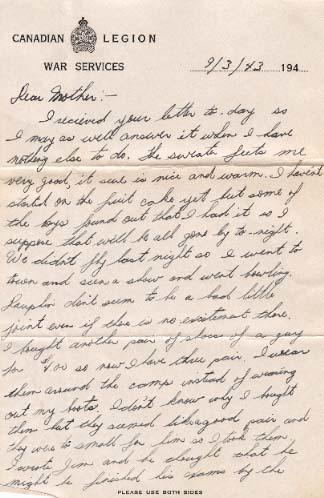 CANADIAN LEGION
WAR SERVICES
9/3/43 194
Dear Mother:-
I received your letter to-day so
I may as well answer it when I have
nothing else to do. The sweater feets me
very good, it sure is nice and warm. I havent
started on the fruit cake yet but some of
the boys found out that I had it so I
suppose that will be all gone by to-night.
We didn't fly last night so I went to
town and seen a show and went bowling.
Dauphin don't seem to be a bad little
joint even if else is no excitement there.
I bought another pair of shoes of a guy
for $1.00 so now I have three pair. I wear
them around the camp instead of wearing
out my boots. I don't know why I bought
them but they seemed like a good pair and
they were to small for him so I took them.
I wrote Jim and he thought that he
might be finished his exams by the
PLEASE USE BOTH SIDES